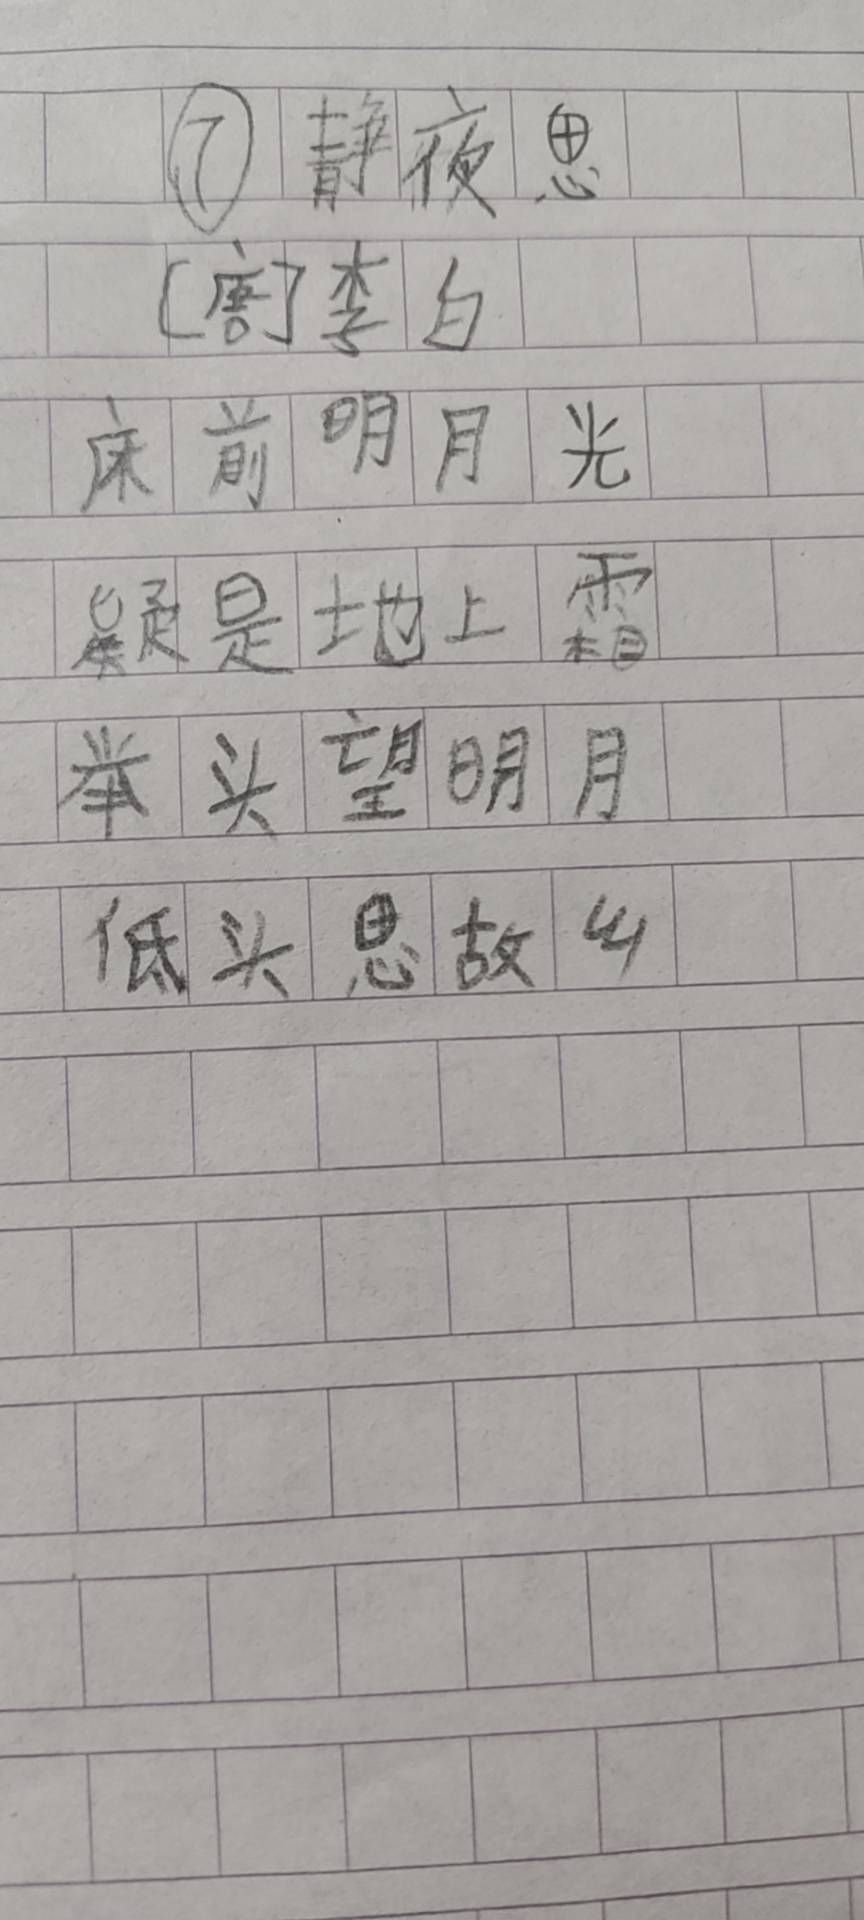 ⑦ 静夜思
[唐]李白
床前明月光
疑是地上霜
举头望明月
低头思故乡